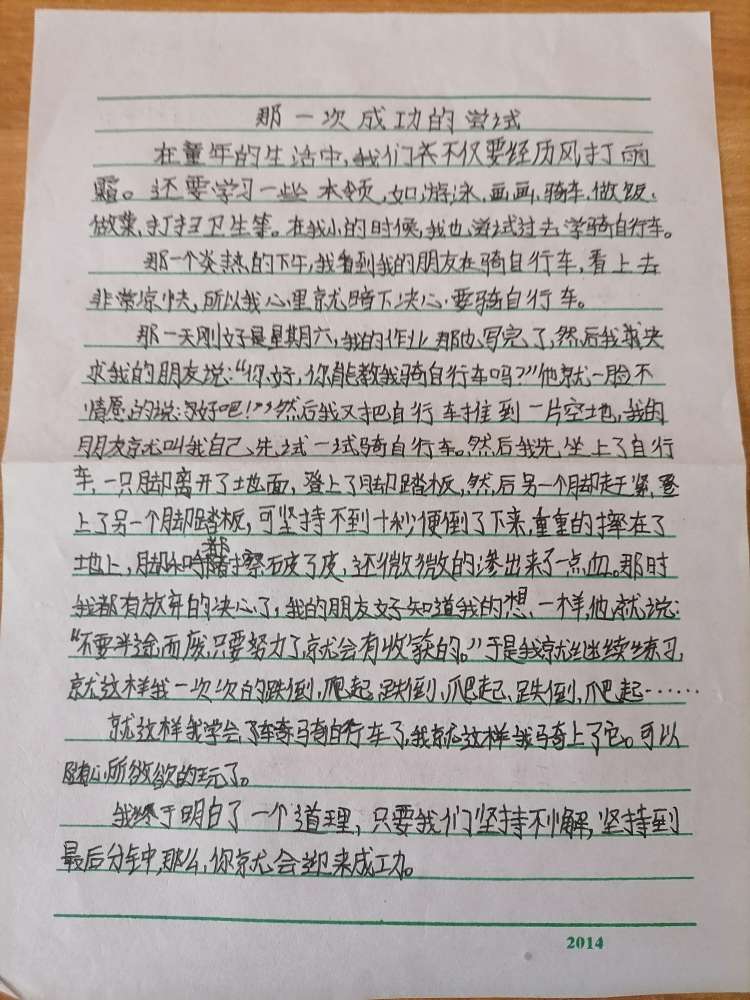 那一次成功的尝试
在童年的生活中,我们不仅要经历风打雨
霜。还要学习一些本领,如游泳、画画、骑车、做饭、
做菜、打扫卫生等。在我小的时候,我也尝试过去学骑自行车。
那一个炎热的下午,我看到我的朋友在骑自行车,看上去
非常凉快,所以我心里就暗下决心要骑自行车。
那一天刚好是星期六,我的作业那也写完了,然后我我央
求我的朋友说:“你好,你能教我骑自行车吗?”他就一脸不
情愿的说:“好吧!”然后我又把自行车推到一片空地,我的
朋友就叫我自己先试一试骑自行车。然后我先坐上了自行
车,一只脚离开了地面,登上了脚踏板,然后另一个脚赶紧登
上了另一个脚踏板,可坚持不到十秒便倒了下来,重重的摔在了
地上,脚和都擦破了皮,还微微的渗出来了一点血。那时
我都有放弃的决心了,我的朋友好知道我的想一样,他就说:
“不要半途而废,只要努力了就会有收获的。”于是我就继续练习,
就这样我一次次的跌倒,爬起,跌倒,爬起、跌倒,爬起……
就这样我学会了骑自行车了,我就这样我骑上了它。可以
随心所欲欲的玩了。
我终于明白了一个道理,只要我们坚持不懈,坚持到
最后分钟,那么,你就会迎来成功。
2014